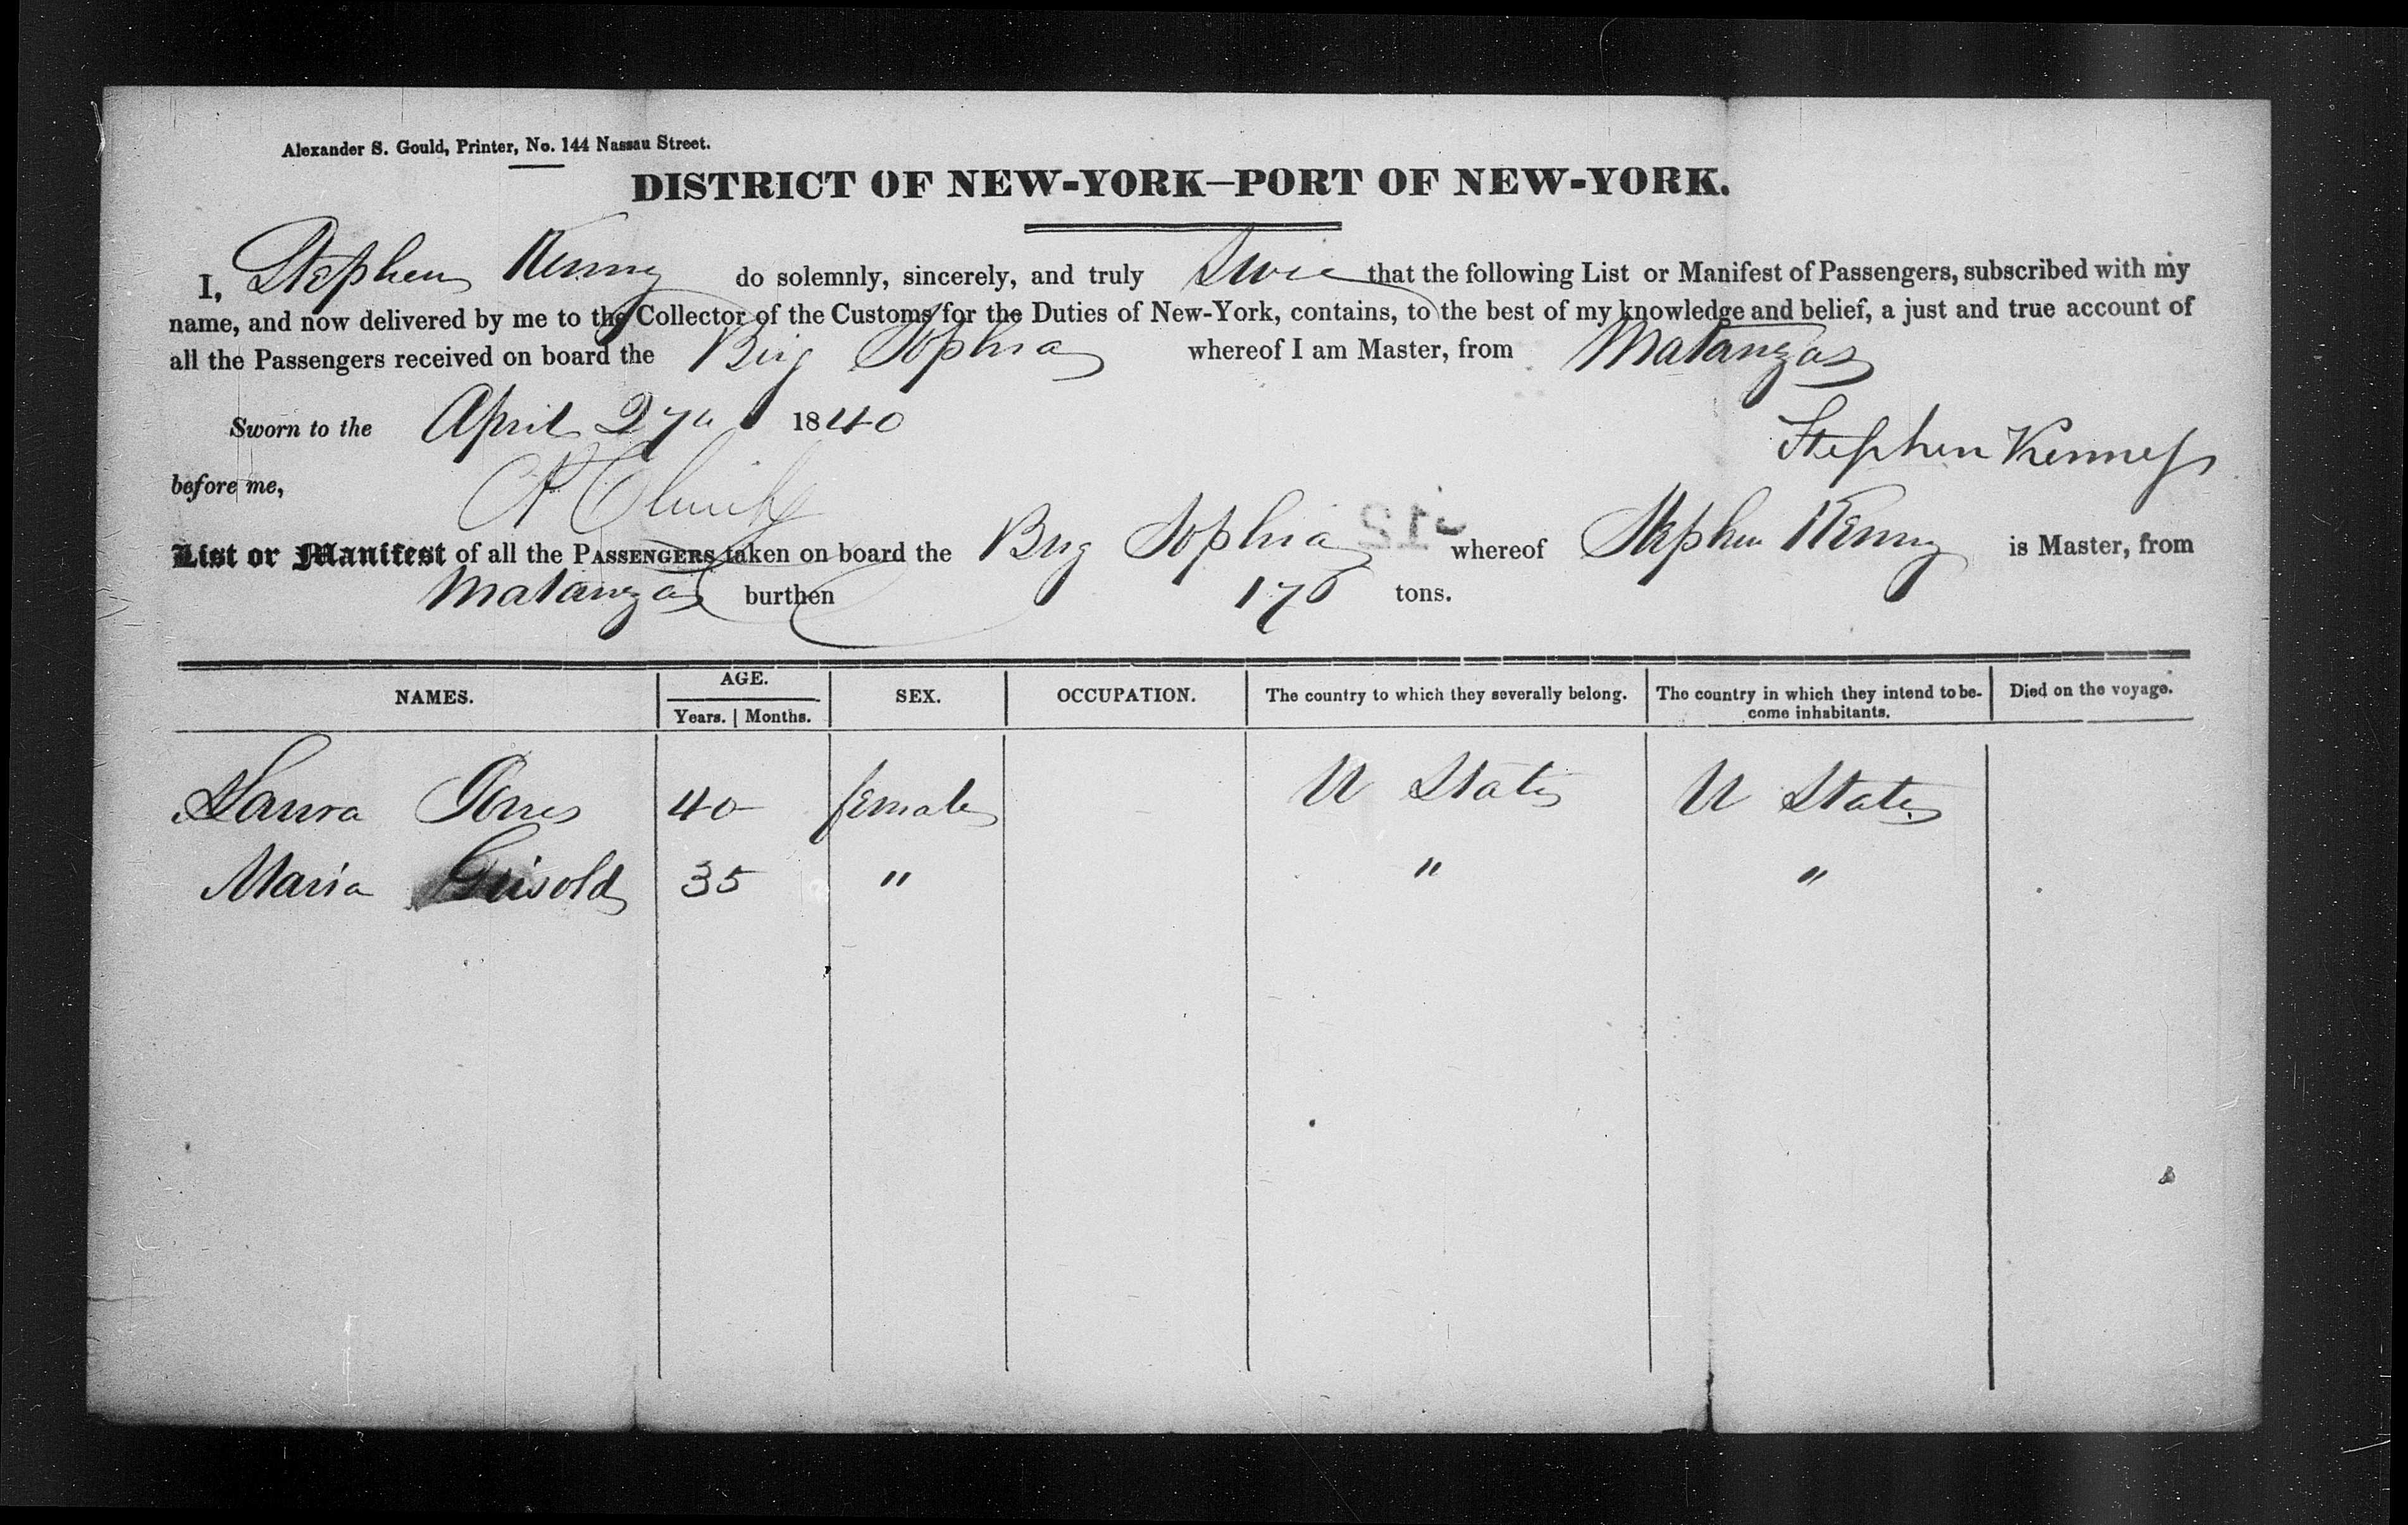 Alexander S. Gould, Printer, No. 144 Nassau Street.
DISTRICT OF NEW-YORK—PORT OF NEW-YORK.
I, Stephen Kenny do solemnly, sincerely, and truly that the following List or Manifest of Passengers, subscribed with my
name, and now delivered by me to the Collector of the Customs for the Duties of New-York, contains, to the best of my knowledge and belief, a just and true account of
all the Passengers received on board the Brig Sophia whereof I am Master, from Matanzas
Sworn to the April 27th 1840
Stephen Kenney
before me,
List or Manifest of all the PASSENGERS taken on board the Brig Sophia whereof Stephen Kenny is Master, from
Matanzas burthen 176 tons.
NAMES. AGE. Years. | Months. SEX. OCCUPATION. The country to which they severally belong. The country in which they intend to be-come inhabitants. Died on the voyage.
Laura Jones 40 female U States U States
Maria Grisold 35 " " "